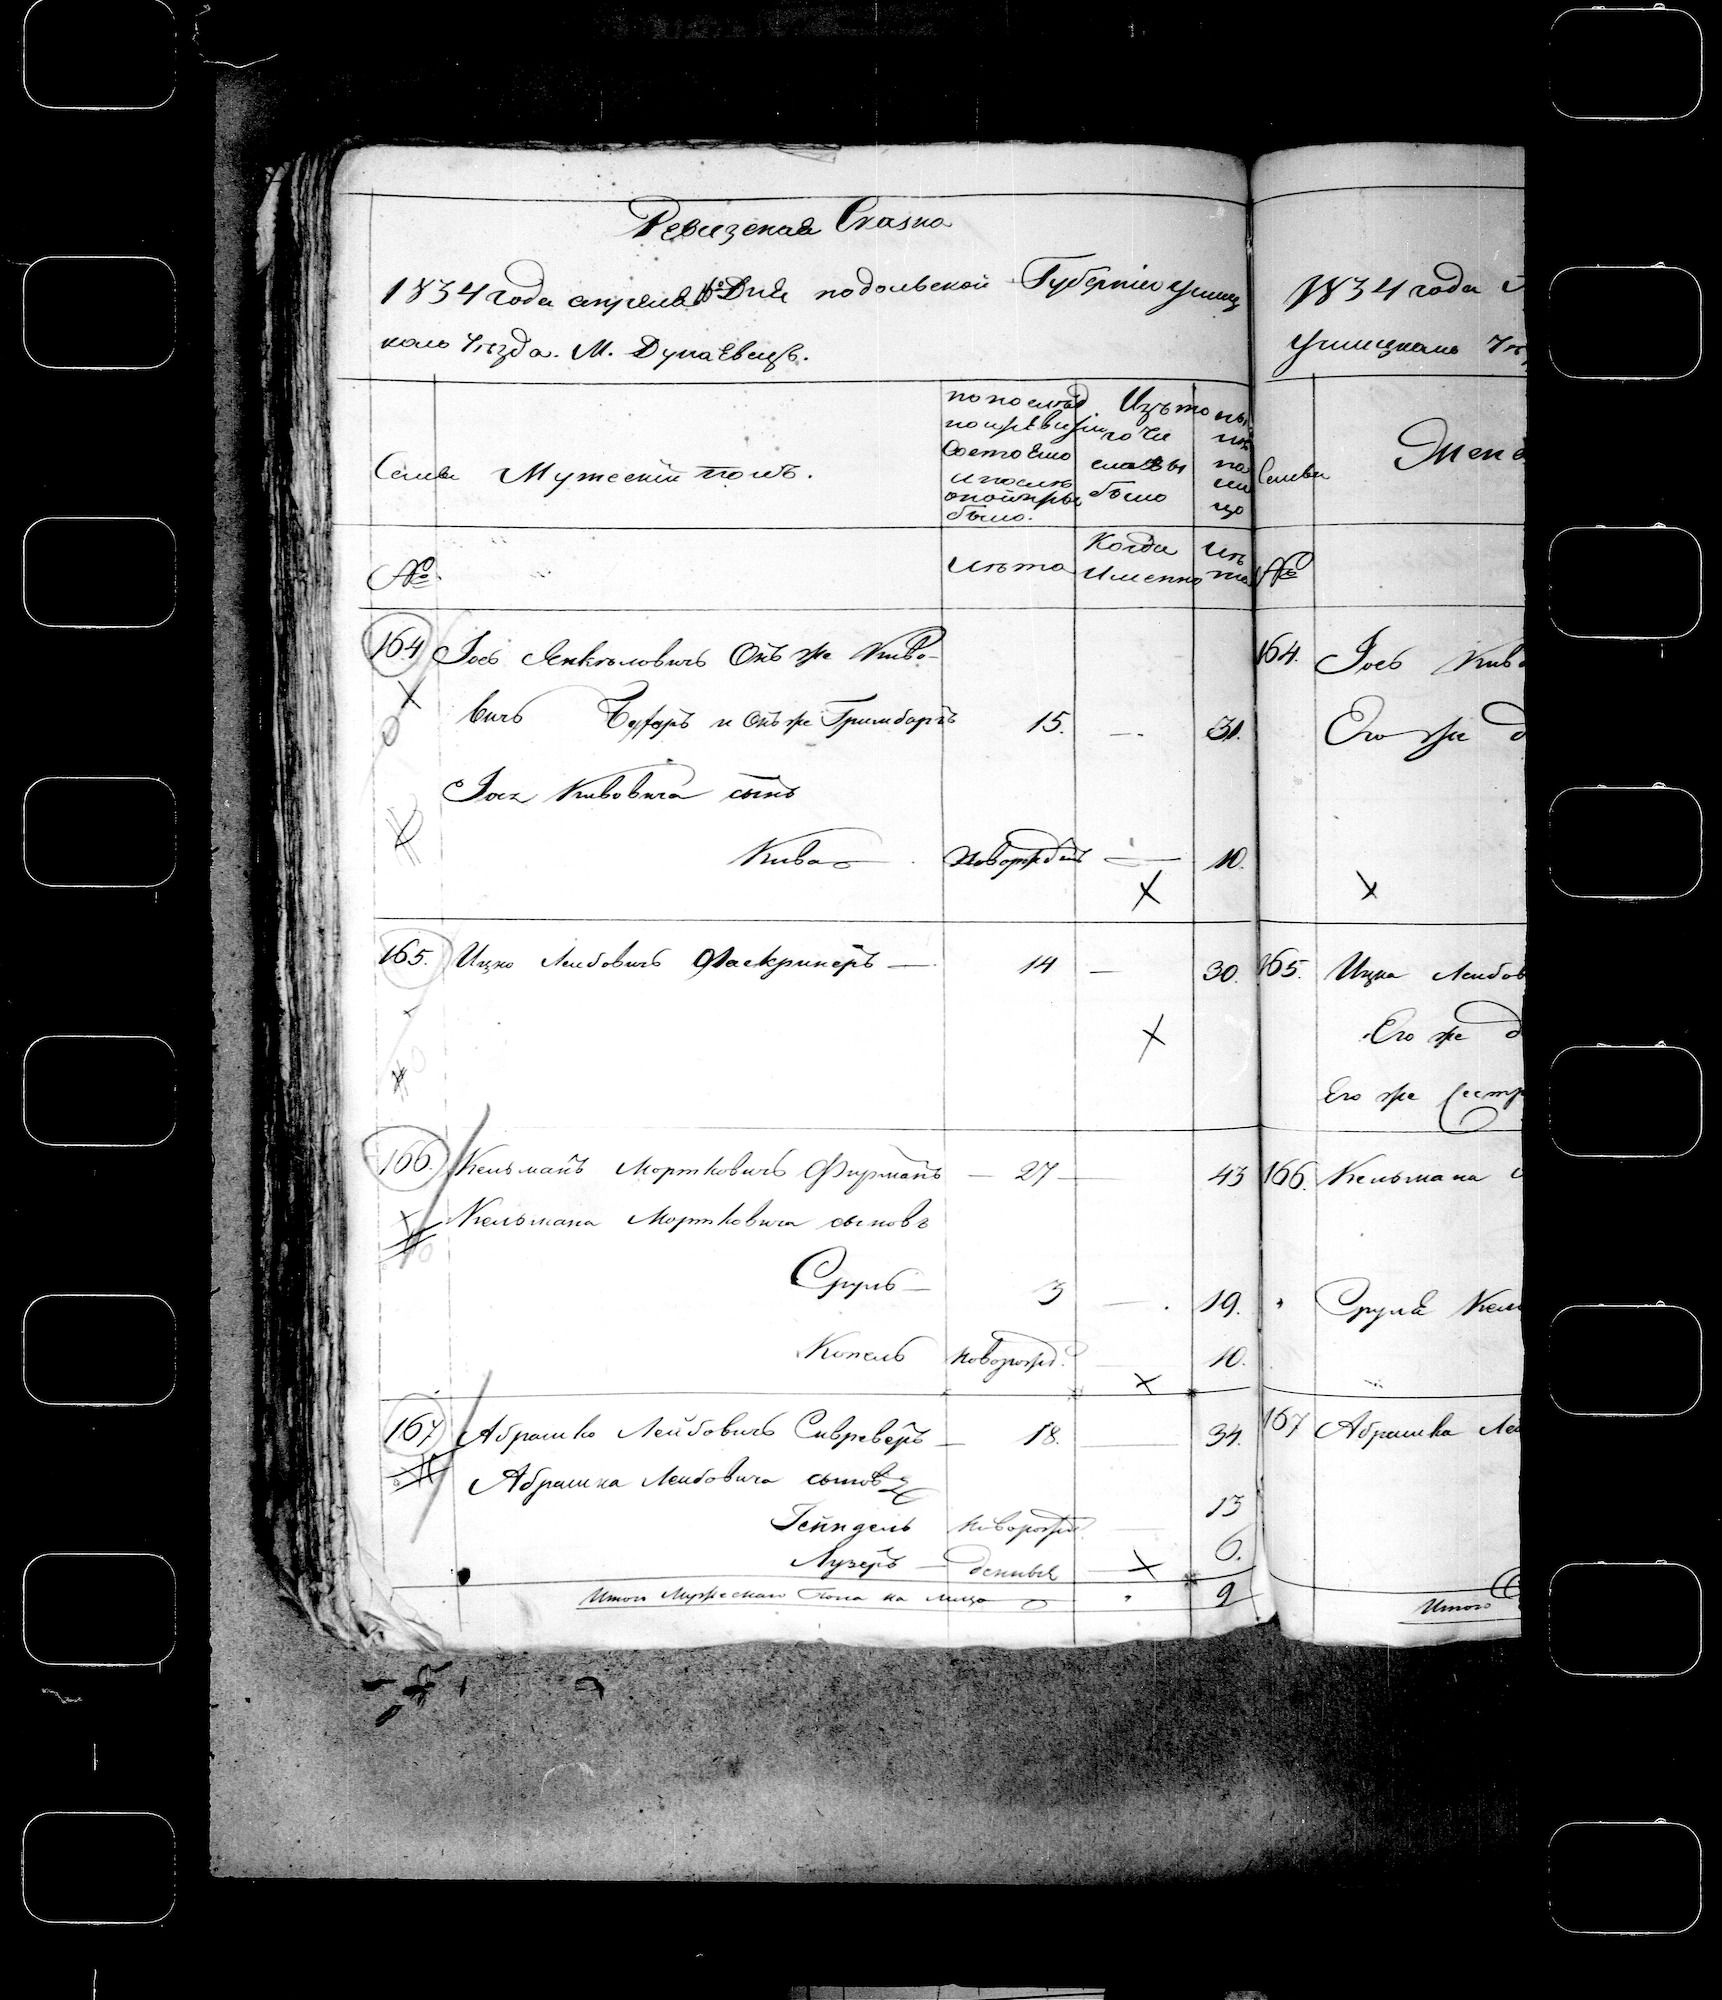 Ревизская Сказка
1834 года апреля Дня подольской Губернїи Ушиц
каго Уѣзда. М. Дунаевецъ.
Семьи
Мужескїй полъ.
по послѣд
ней ревизїи
состояло
и послѣ
оной при
было.
Изъ то
го числа
выбыло
ны
нѣ
на
ли
цо
№
Лѣта
Когда
Именно
Лѣ
та
164
Іось Янкѣловичъ Онъ же Киво-
вичъ и Онъ же Гримбаргъ 15. — 31.
Іося Кивовича сынъ
Кива — новорожденъ — 10.
165. Ицко Лейбовичъ — 14 — 30.
166. Кельманъ Мортковичъ Фурманъ — 27 — 43
Кельмана Мортковича сыновъ
Сруль — 3 — 19.
Копель новорожд. — 10.
167 Абрашко Лейбовичъ — 18. — 34.
Абрашка Лейбовича сыновья
Гейндель новорож — 13
Лузеръ — денныя — 6.
Итого Мужескаго Пола на лицо 9
1834 года
Ушицкаго Уѣ
Семьи
Женс
№
164. Іося Киво
Его же д
165. Ицка Лейбов
Его же д
Его же Сестр
166. Кельмана
Сруля Кель
167 Абрашка Лей
Итого